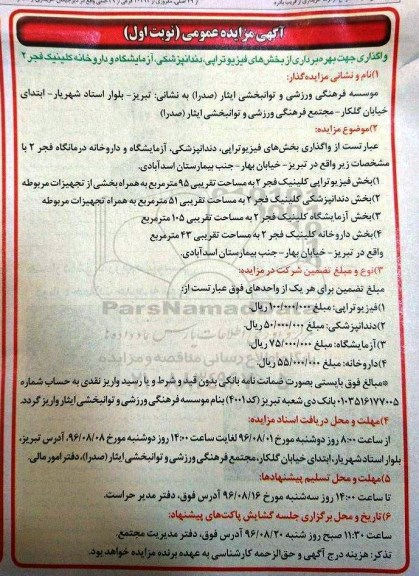 آگهی مزایده عمومی (نوبت اول)
واگذاری جهت بهره برداری از بخش‌های فیزیوتراپی، دندانپزشکی، آزمایشگاه و داروخانه کلینیک فجر ۲
۱)نام و نشانی مزایده‌گذار:
موسسه فرهنگی ورزشی و توانبخشی ایثار (صدرا) به نشانی: تبریز- بلوار استاد شهریار- ابتدای
خیابان گلکار- مجتمع فرهنگی ورزشی و توانبخشی ایثار (صدرا)
۲)موضوع مزایده:
عبارتست از واگذاری بخش‌های فیزیوتراپی، دندانپزشکی، آزمایشگاه و داروخانه درمانگاه فجر ۲ با
مشخصات زیر واقع در تبریز- خیابان بهار- جنب بیمارستان اسدآبادی.
۱)بخش فیزیوتراپی کلینیک فجر ۲ به مساحت تقریبی ۹۵ مترمربع به همراه بخشی از تجهیزات مربوطه
۲)بخش دندانپزشکی کلینیک فجر ۲ به مساحت تقریبی ۵۱ مترمربع به همراه تجهیزات مربوطه
۳)بخش آزمایشگاه کلینیک فجر ۲ به مساحت تقریبی ۱۰۵ مترمربع
۴)بخش داروخانه کلینیک فجر ۲ به مساحت تقریبی ۴۳ مترمربع
واقع در تبریز- خیابان بهار- جنب بیمارستان اسدآبادی.
۳)نوع و مبلغ تضمین شرکت در مزایده:
مبلغ تضمین برای هر یک از واحدهای فوق عبارتست از:
۱)فیزیوتراپی: مبلغ ۱۰۰/۰۰۰/۰۰۰ ریال.
ParsNamadData
۲)دندانپزشکی: مبلغ ۵۰/۰۰۰/۰۰۰ ریال.
۳)آزمایشگاه: مبلغ ۷۵/۰۰۰/۰۰۰ ریال.
۴)داروخانه: مبلغ ۵۵/۰۰۰/۰۰۰ ریال.
*مبالغ فوق بایستی بصورت ضمانت نامه بانکی بدون قید و شرط و یا رسید واریز نقدی به حساب شماره
۰۱۰۳۵۱۶۱۷۷۰۰۵ بانک دی شعبه تبریز (کد ۴۰۰۱) بنام موسسه فرهنگی ورزشی و توانبخشی ایثار واریز گردد.
۴)مهلت و محل دریافت اسناد مزایده:
از ساعت ۸:۰۰ روز دوشنبه مورخ ۹۶/۰۸/۰۱ لغایت ساعت ۱۴:۰۰ روز دوشنبه مورخ ۹۶/۰۸/۰۸. آدرس تبریز،
بلوار استاد شهریار، ابتدای خیابان گلکار، مجتمع فرهنگی ورزشی و توانبخشی ایثار (صدرا)، دفتر امور مالی.
۵)مهلت و محل تسلیم پیشنهادها:
تا ساعت ۱۴:۰۰ روز سه‌شنبه مورخ ۹۶/۰۸/۱۶ آدرس فوق، دفتر مدیر حراست.
۶)تاریخ و محل برگزاری جلسه گشایش پاکت‌های پیشنهاد:
ساعت ۱۱:۳۰ صبح روز شنبه ۹۶/۰۸/۲۰ آدرس فوق، دفتر مدیریت مجتمع.
تذکر: هزینه درج آگهی و حق‌الزحمه کارشناسی به عهده برنده مزایده خواهد بود.